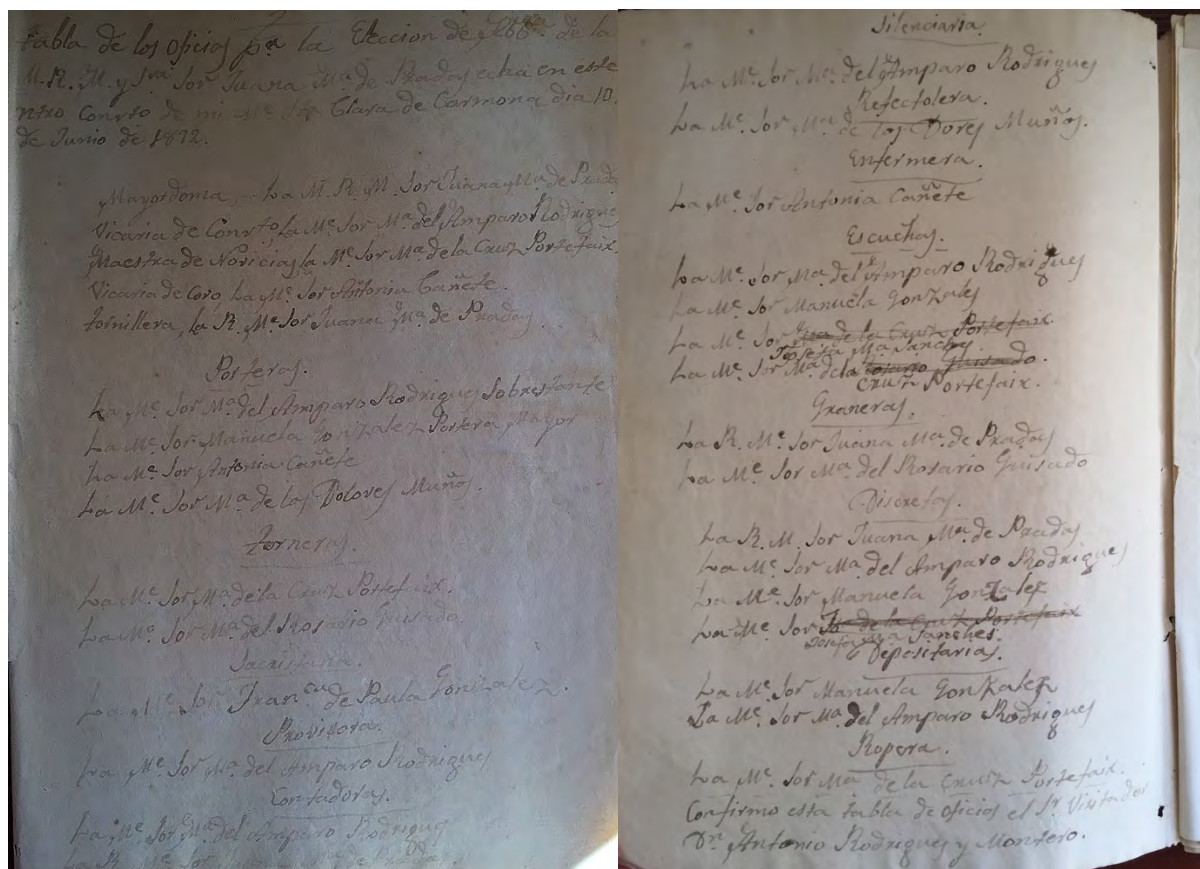 tabla de los oficios pa. la Eleccion de Abba. de la
M. R. M. y Sra. Sor Juana Ma. de Pradas echa en este
ntro Convto de mi Me. Sta Clara de Carmona dia 10.
de Junio de 1872.
Mayordoma, La M. R. M. Sor Juana Ma. de Prada
Vicaria de Convto, La Me. Sor Ma. del Amparo Rodrigue
Maestra de Novicias, la Me. Sor Ma. de la Cruz Portefaix.
Vicaria de Coro La Me. Sor Antonia Cañete.
tornillera, la R. Me. Sor Juana Ma. de Pradas.
Porteras.
La Me. Sor Ma. del Amparo Rodrigues Sobrestante
La Me. Sor Manuela Gonzalez Portera Mayor
La Me. Sor Antonia Cañete
La Me. Sor Ma. de los Dolores Muños.
torneras.
La Me. Sor Ma. de la Cruz Portefaix.
La Me. Sor Ma. del Rosario Guisado.
Sacristana.
La Me. Sor Franca. de Paula Gonzalez.
Provisora.
La Me. Sor Ma. del Amparo Rodrigues
Contadoras.
La Me. Sor Ma. del Amparo Rodrigues
La R. Me. Sor Juana Ma. de Pradas.
Silenciaria.
La Me. Sor Ma. del Amparo Rodrigues
Refectolera.
La Me. Sor Ma. de los Dores Muños.
Enfermera.
La Me. Sor Antonia Cañete
Escuchas.
La Me. Sor Ma. del Amparo Rodrigues
La Me. Sor Manuela Gonzales
La Me. Sor Ma. de la Cruz Portefaix.
Josefa Ma. Sanches.
La Me. Sor Ma. de la Rosario Guisado.
Cruz Portefaix.
Graneras.
La R. Me. Sor Juana Ma. de Pradas
La Me. Sor Ma. del Rosario Guisado
Discretas.
La R. M. Sor Juana Ma. de Pradas
La Me. Sor Ma. del Amparo Rodrigues
La Me. Sor Manuela Gonzalez
La Me. Sor Ma. de la Cruz Portefaix
Josefa Ma. Sanches.
Depositarias.
La Me. Sor Manuela Gonzalez
La Me. Sor Ma. del Amparo Rodrigues
Ropera.
La Me. Sor Ma. de la Cruz Portefaix.
Confirmo esta tabla de oficios el Sr. Visitador
Dn. Antonio Rodrigues y Montero.